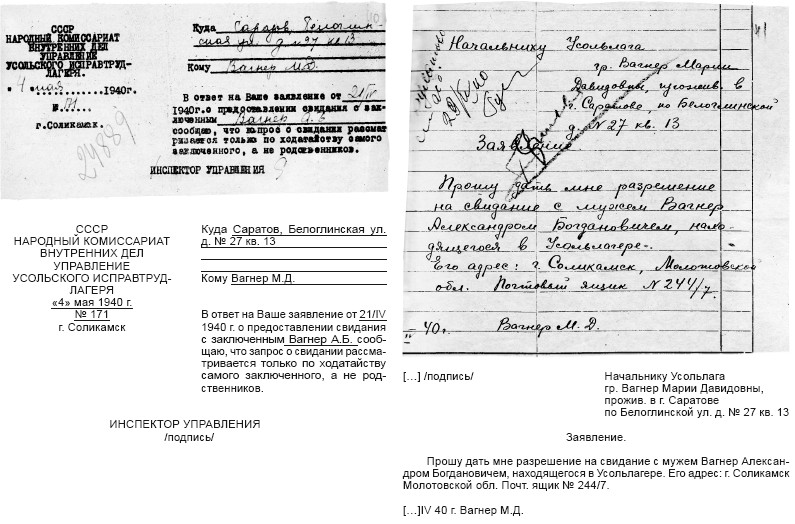 СССР
НАРОДНЫЙ КОМИССАРИАТ
ВНУТРЕННИХ ДЕЛ
УПРАВЛЕНИЕ
УСОЛЬСКОГО ИСПРАВТРУД-
ЛАГЕРЯ.
"4" мая 1940г.
№ 171
г.Соликамск.
24889
Куда Саратов, Белоглин
ская ул. д №27 кв 13
Кому Вагнер М.Д.
В ответ на Ваше заявление от 21/IV
1940г.о предоставлении свидания с зак-
люченным Вагнер А.Б
сообщаю, что вопрос о свидании рассмат
ривается только по ходатайству самого
заключенного, а не родственников.
ИНСПЕКТОР УПРАВЛЕНИЯ
41
Начальнику Усольлага
гр. Вагнер Марии
Давидовны, прожив. в
г. Саратове, по Белоглинской
д. № 27 кв. 13
29/IV 40
Заявление
Прошу дать мне разрешение
на свидание с мужем Вагнер
Александром Богдановичем, нахо-
дящегося в Усольлагере.
Его адрес: г. Соликамск, Молотовской
обл. Почтовый ящик № 244/7.
40г. Вагнер М. Д.
СССР
НАРОДНЫЙ КОМИССАРИАТ
ВНУТРЕННИХ ДЕЛ
УПРАВЛЕНИЕ
УСОЛЬСКОГО ИСПРАВТРУД-
ЛАГЕРЯ
«4» мая 1940 г.
№ 171
г. Соликамск
Куда Саратов, Белоглинская ул.
д. № 27 кв. 13
Кому Вагнер М.Д.
В ответ на Ваше заявление от 21/IV
1940 г. о предоставлении свидания
с заключенным Вагнер А.Б. сооб-
щаю, что запрос о свидании рассма-
тривается только по ходатайству
самого заключенного, а не род-
ственников.
ИНСПЕКТОР УПРАВЛЕНИЯ
/подпись/
[…] /подпись/
Начальнику Усольлага
гр. Вагнер Марии Давидовны,
прожив. в г. Саратове
по Белоглинской ул. д. № 27 кв. 13
Заявление.
Прошу дать мне разрешение на свидание с мужем Вагнер Алексан-
дром Богдановичем, находящегося в Усольлагере. Его адрес: г. Соликамск
Молотовской обл. Почт. ящик № 244/7.
[…]IV 40 г. Вагнер М.Д.